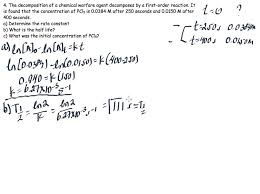 4. The decomposition of a chemical warfare agent decomposes by a first-order reaction. It
is found that the concentration of PCl₃ is 0.0384 M after 250 seconds and 0.0150 M after
400 seconds.
a) Determine the rate constant
b) What is the half life?
c) What was the initial concentration of PCl₃?
t=0 ?
t=250s 0.0384M
t=400s 0.0150M
a) ln[A]₀-ln[A]t=kt
ln(0.0384)-ln(0.0150)=k(400-250)
0.940=k(150)
k=6.27x10⁻³ s⁻¹
b) T½=ln2/k=ln2/6.27x10⁻³s⁻¹=111s=T½